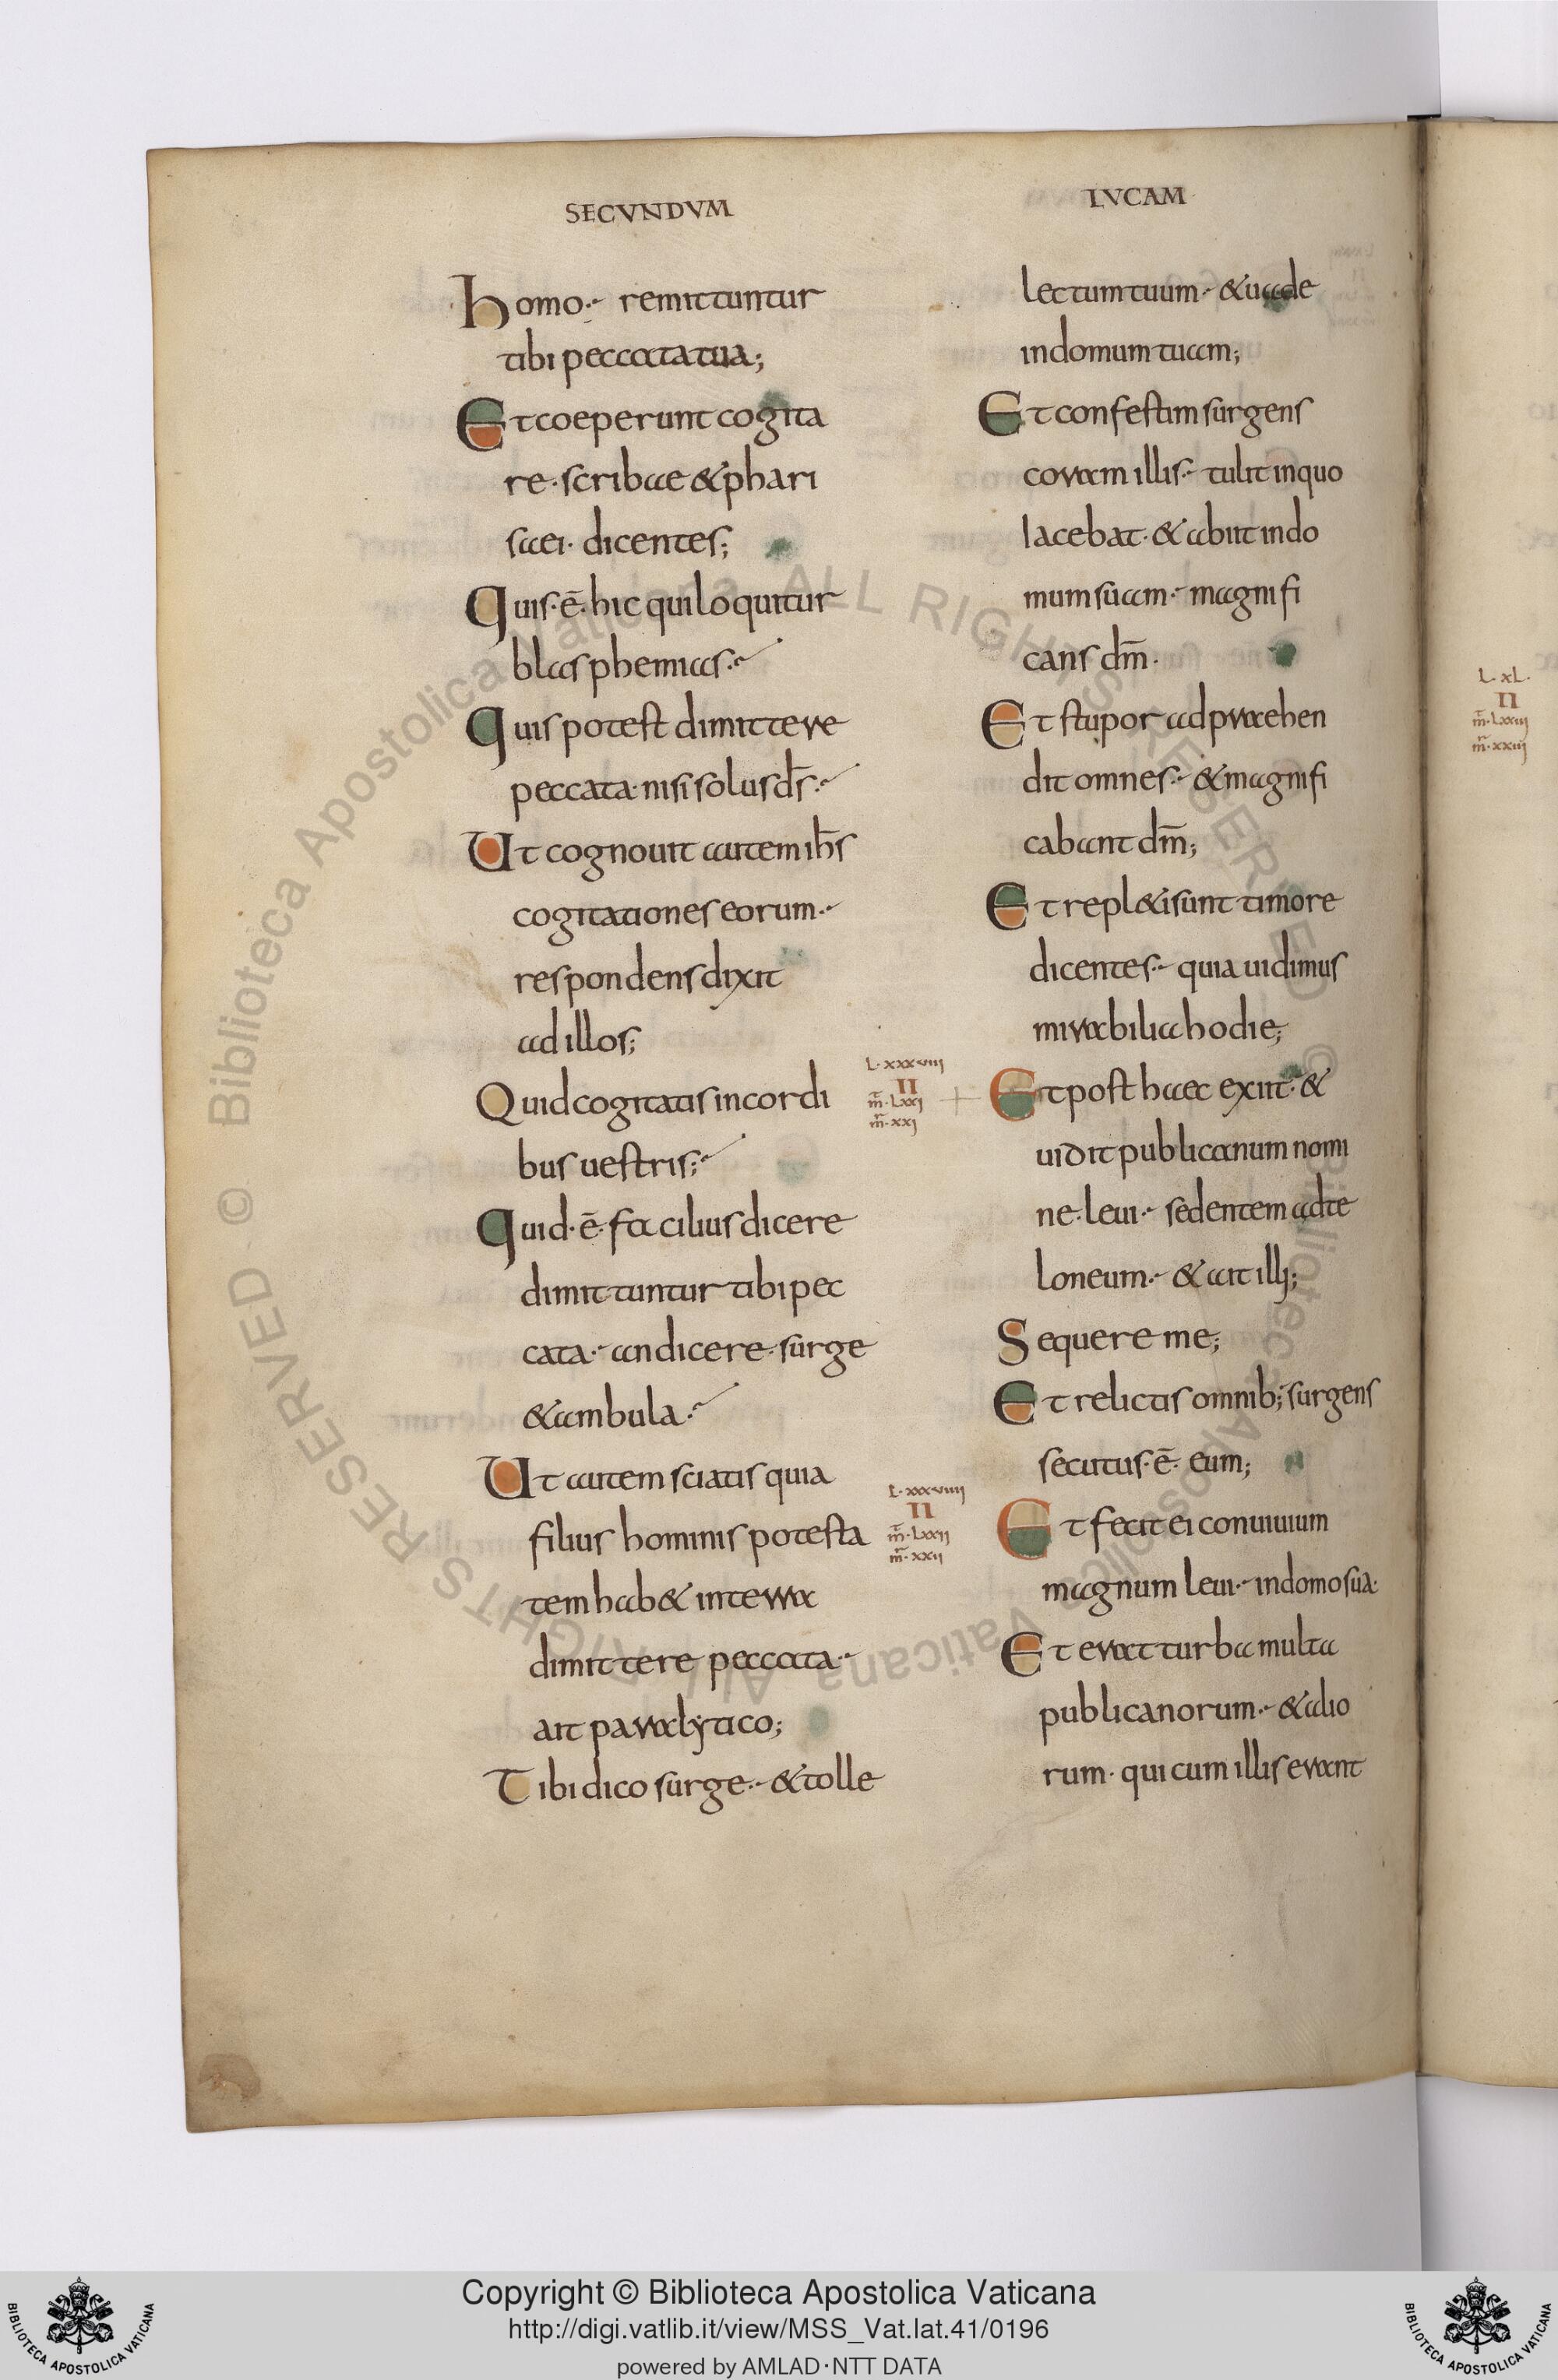 SECVNDVM
homo·- remittuntur
tibi peccata tua;
Et coeperunt cogita
re· scribae & phari
saei· dicentes;
Quis· ē· hic qui loquitur
blasphemias·-
Quis potest dimittere
peccata· nisi solus d̄s·-
Ut cognouit autem ih̄s
cogitationes eorum·-
respondens dixit
ad illos;
Quid cogitatis in cordi
bus uestris;-
Quid· ē· facilius dicere
dimittuntur tibi pec
cata·- an dicere· surge
& ambula·-
Ut autem sciatis quia
filius hominis potesta
tem hab& in terra
dimittere peccata·-
ait paralytico;
Tibi dico surge·- & tolle
LVCAM
lectum tuum·- & uade
in domum tuam;
Et confestim surgens
coram illis·- tulit in quo
lacebat· & abiit in do
mum suam·- magnifi
cans dm̄·
Et stupor adpraehen
dit omnes·- & magnifi
cabant dm̄;
Et repl&i sunt timore
dicentes·- quia uidimus
mirabilia hodie;
L·xxxviii
II
m̄·Lxxi
m̄·xxi
Et post haec exiit· &
uidit publicanum nomi
ne· leui·- sedentem ad te
loneum·- & ait illi;
Sequere me;
Et relictis omnib; surgens
secutus· ē· eum;
L·xxxviiii
II
m̄·Lxxii
m̄·xxii
Et fecit ei conuiuium
magnum leui·- in domo sua·
Et erat turba multa
publicanorum·- & alio
rum· qui cum illis erant
L·xL·
II
m̄·Lxxiii
m̄·xxiii
© Biblioteca Apostolica Vaticana ALL RIGHTS RESERVED © Biblioteca Apostolica Vaticana ALL RIGHTS RESERVED
Copyright © Biblioteca Apostolica Vaticana
http://digi.vatlib.it/view/MSS_Vat.lat.41/0196
powered by AMLAD·NTT DATA
BIBLIOTECA APOSTOLICA VATICANA
BIBLIOTECA APOSTOLICA VATICANA